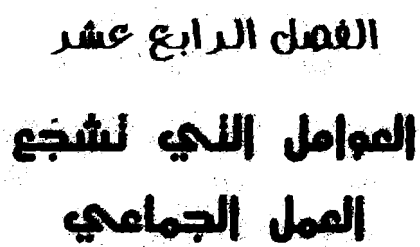 الفصل الرابع عشر
العوامل التي تشجَع
العمل الجماعي